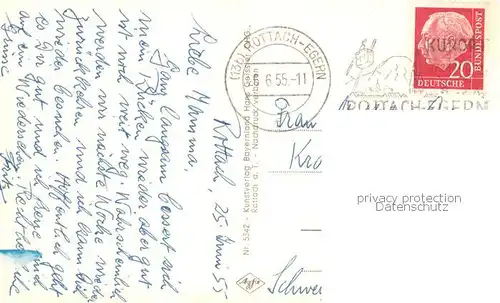 Rottach, 25. Juni 55
Liebe Mamma,
Ganz langsam bessert sich
mein Rücken wieder aber gut
ist noch weit weg. Wahrscheinlich
werden wir nächste Woche wieder
zurückkehren und ich kann Dich
wieder besuchen. Hoffentlich geht
es Dir gut und ich freue mich
auf ein Wiedersehen. Recht herzliche
Grüsse Fritz
Nr. 5342 - Kunstverlag Bayernland Hans
Rottach a. T. - Nachdruck verboten
Agfa
(13b) ROTTACH-EGERN
6.55.-11
KUROR
ROTTACH-EGERN
DEUTSCHE
BUNDESPOST
20
Frau
Kra
Schwe
privacy protection
Datenschutz